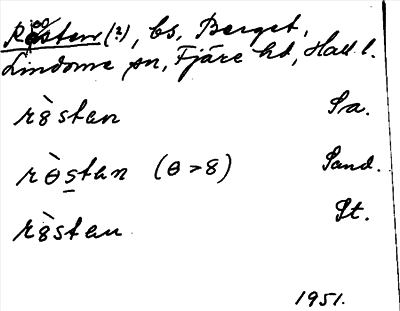 Røsten (?), bs. Berget,
Lindome sn, Fjäre hd, Hall. l.
rὸ8stan Sa.
rὸɵstan (ɵ>8) Sand.
rὸ8stan St.
1951.